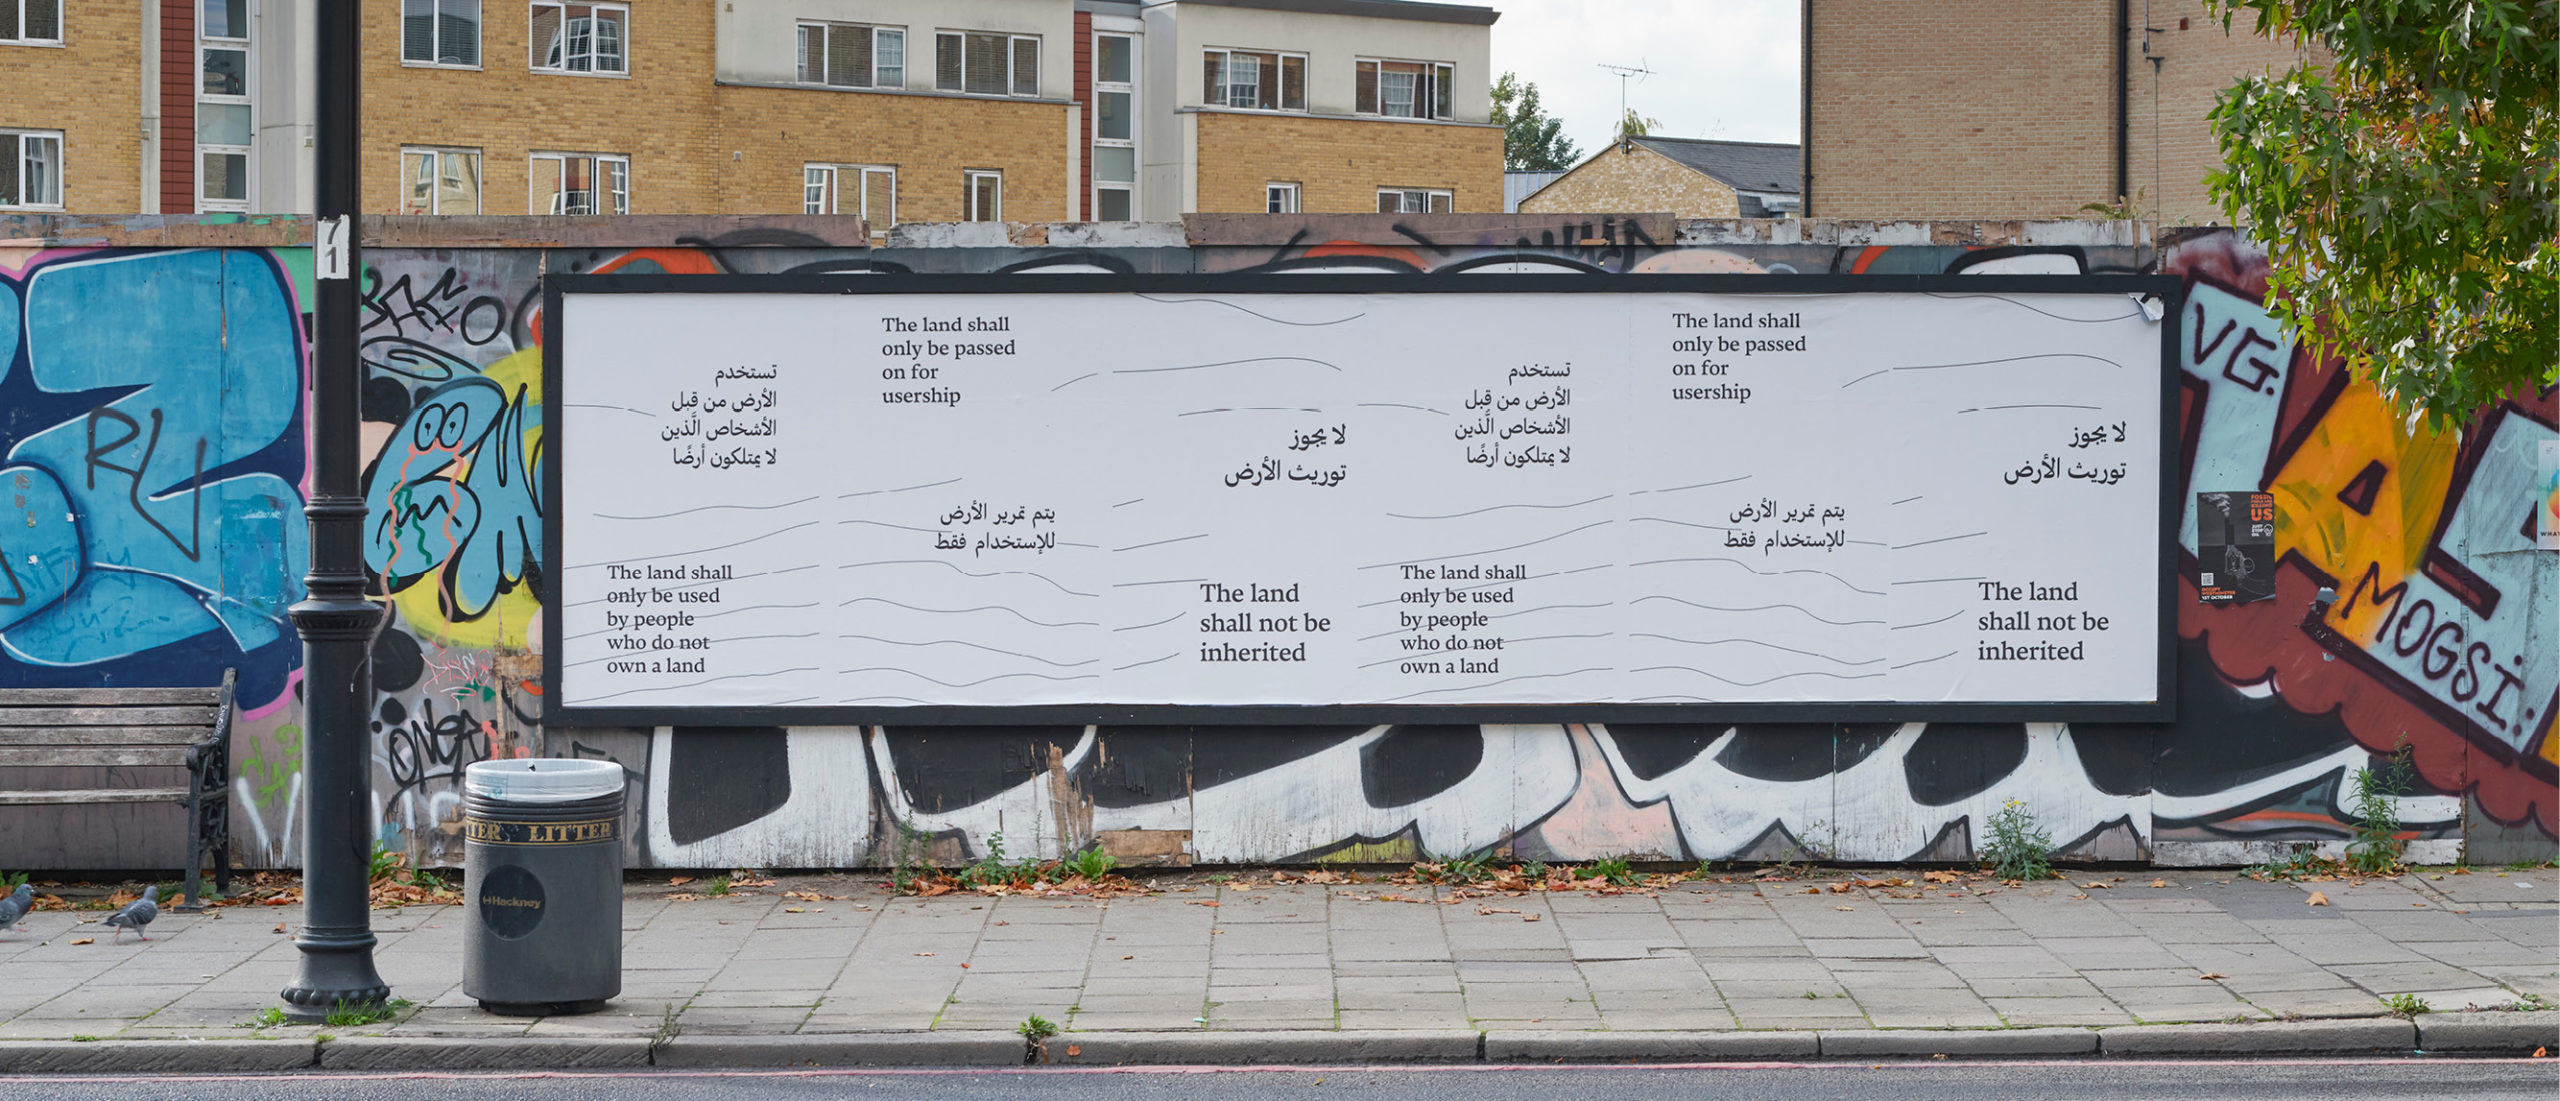 7
1
RY
تستخدم
الأرض من قبل
الأشخاص الَّذين
لا يمتلكون أرضًا
The land shall
only be used
by people
who do not
own a land
The land shall
only be passed
on for
usership
يتم تمرير الأرض
للإستخدام فقط
لا يجوز
توريث الأرض
The land
shall not be
inherited
تستخدم
الأرض من قبل
الأشخاص الَّذين
لا يمتلكون أرضًا
The land shall
only be used
by people
who do not
own a land
The land shall
only be passed
on for
usership
يتم تمرير الأرض
للإستخدام فقط
لا يجوز
توريث الأرض
The land
shall not be
inherited
VG.
MOGSi:
FOSSIL
US
JUST
STOP
OIL
OCCUPY
WESTMINSTER
1ST OCTOBER
WHAT
LITTER
Hackney